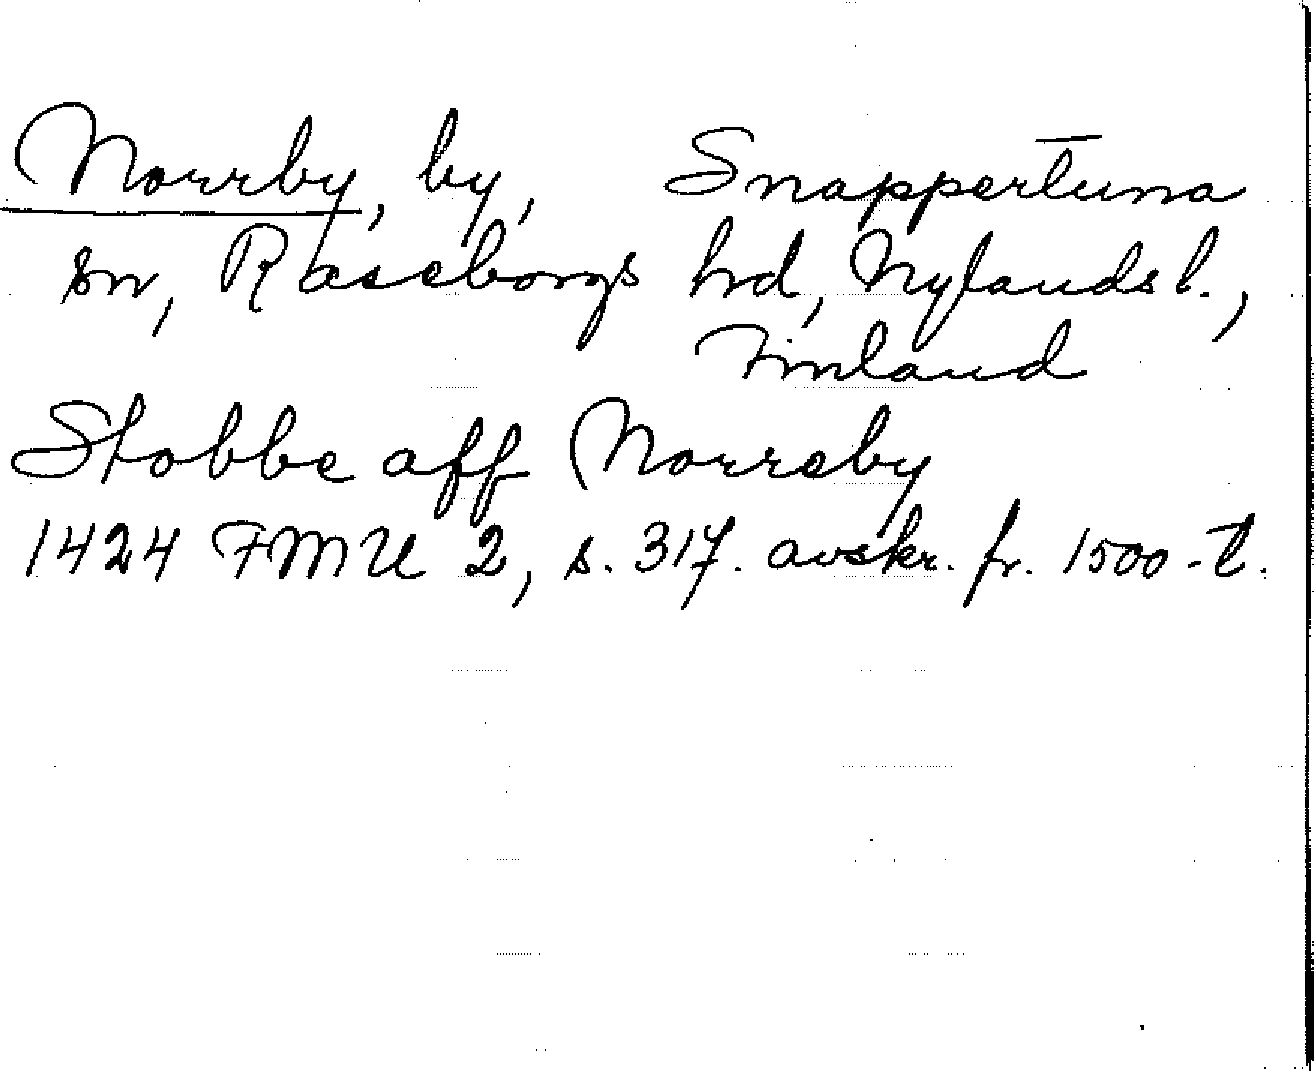 Norrby, by, Snappertuna
sn, Raseborgs hrd, Nylands l.,
Finland
Stobbe aff Norreby
1424 FMU 2, s. 317. avskr. fr. 1500-t.